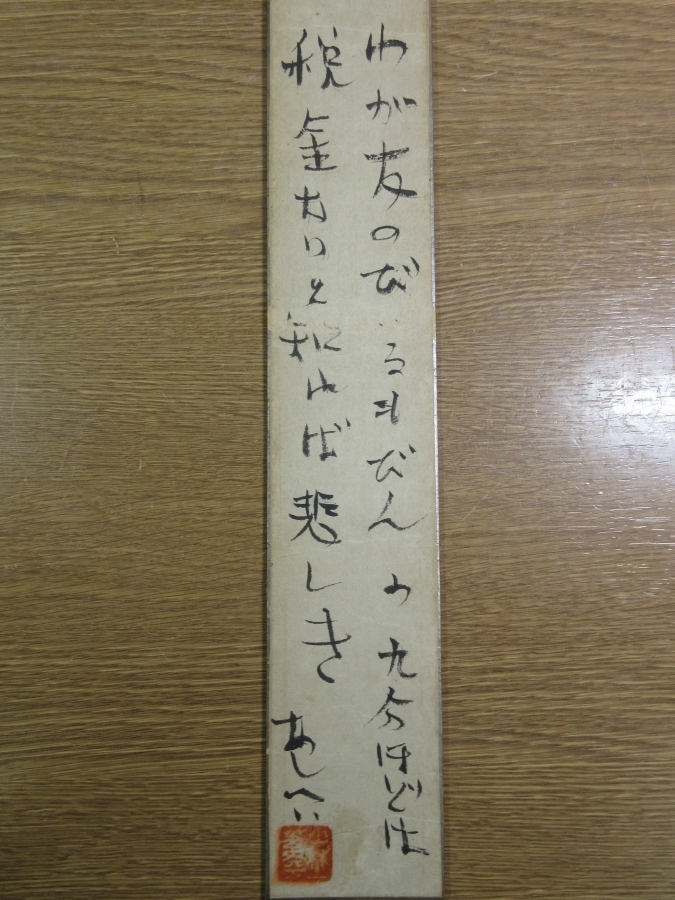 わが友のびいるびんの九分ほどは
税金なりと知れば悲しき
あしへい